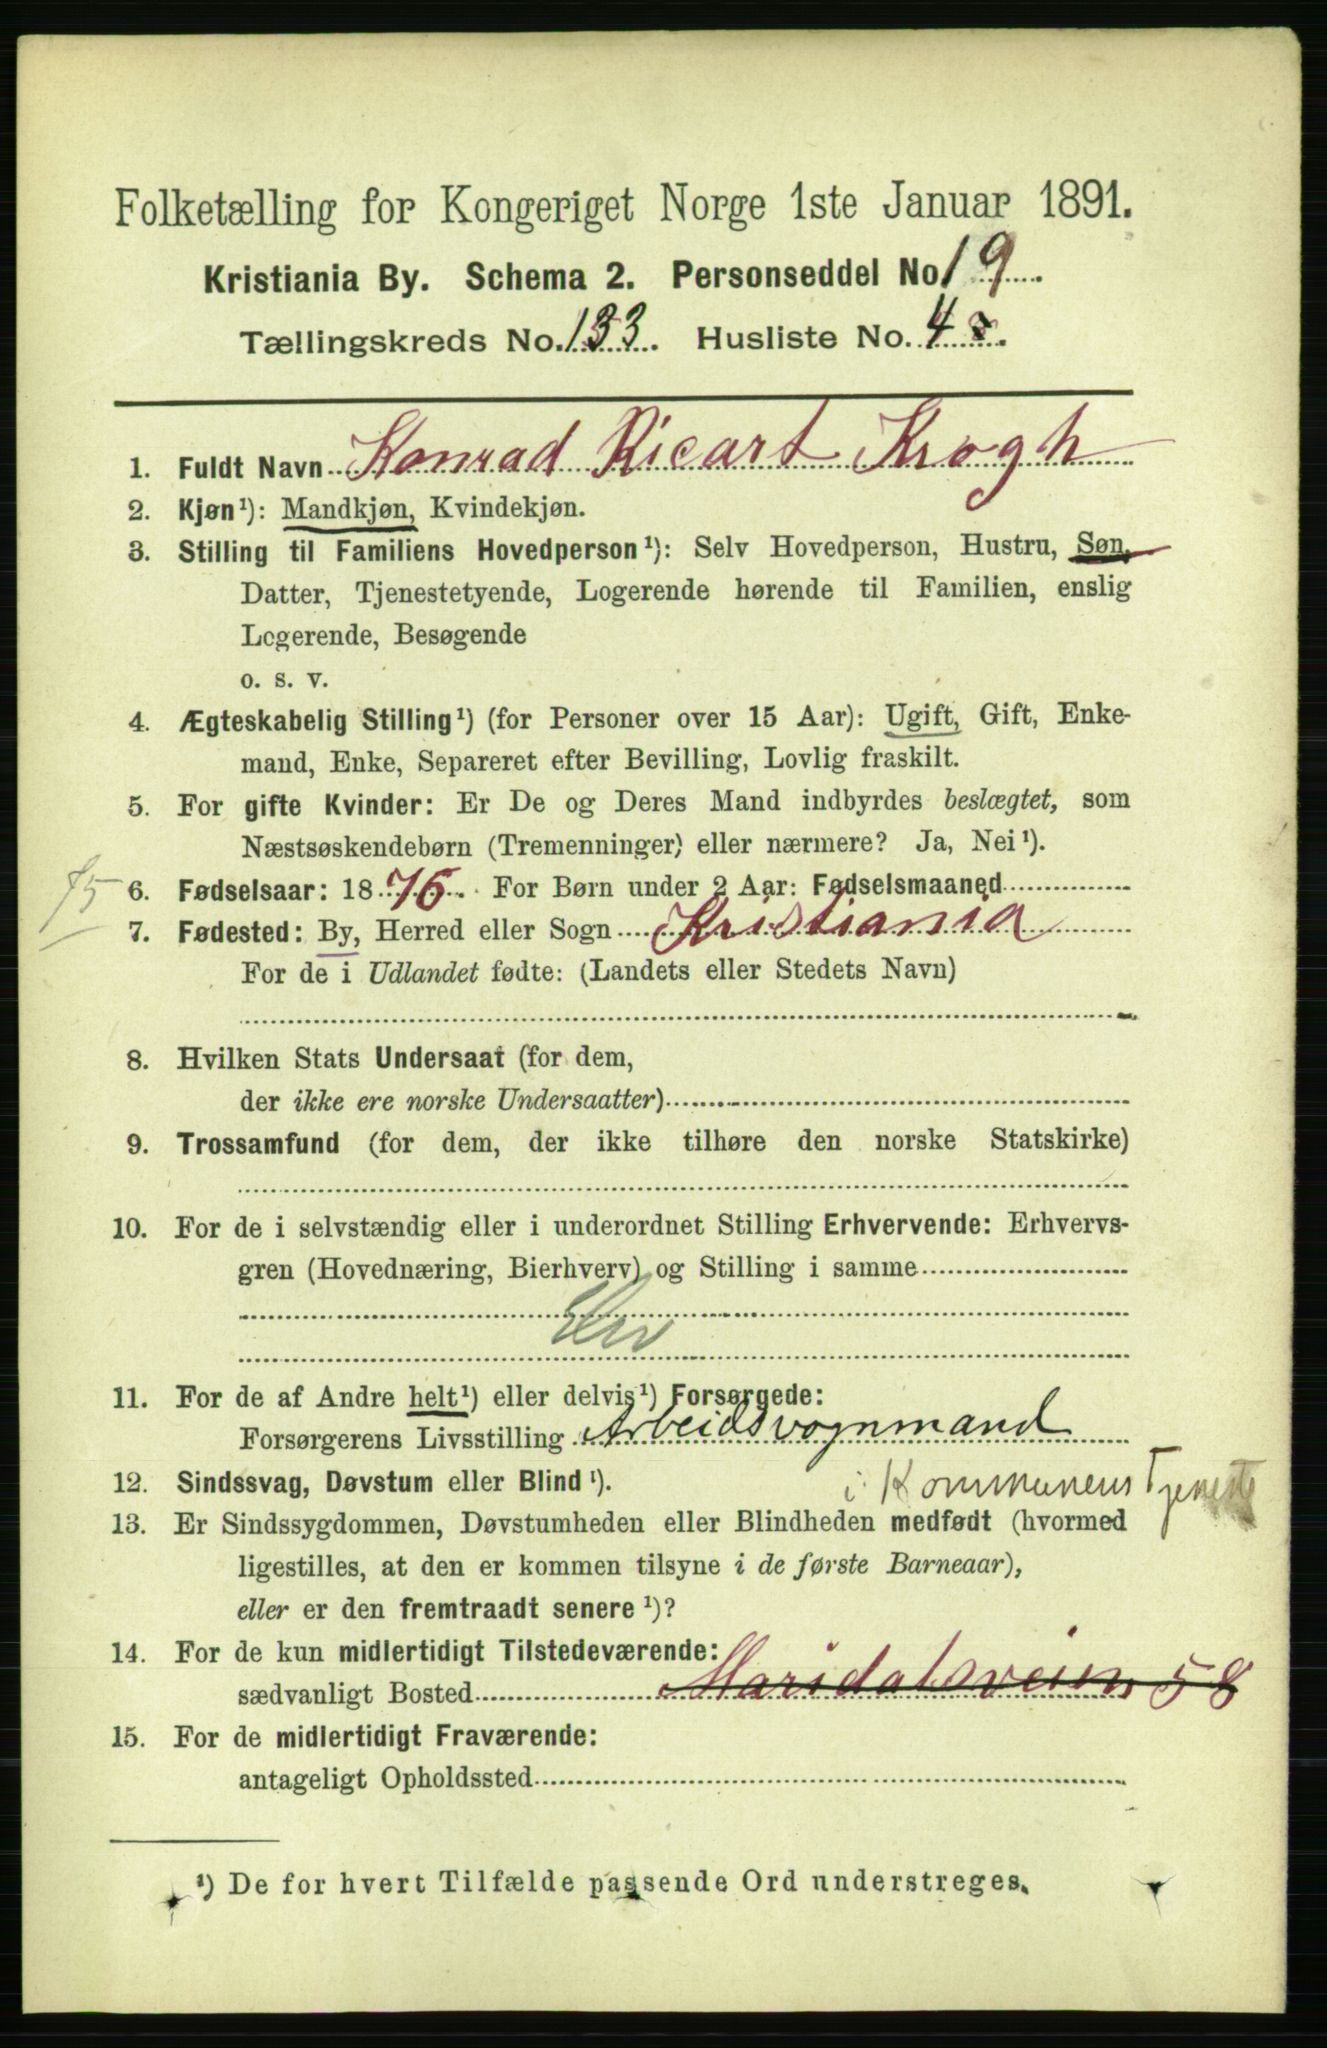 Folketælling for Kongeriget Norge 1ste Januar 1891.
Kristiania By. Schema 2. Personseddel No 19.
Tællingskreds No. 133. Husliste No. 4
1. Fuldt Navn Konrad Ricart Krogh
2. Kjøn¹): Mandkjøn, Kvindekjøn.
3. Stilling til Familiens Hovedperson¹): Selv Hovedperson, Hustru, Søn,
Datter, Tjenestetyende, Logerende hørende til Familien, enslig
Logerende, Besøgende
o. s. v.
4. Ægteskabelig Stilling¹) (for Personer over 15 Aar): Ugift, Gift, Enke-
mand, Enke, Separeret efter Bevilling, Lovlig fraskilt.
5. For gifte Kvinder: Er De og Deres Mand indbyrdes beslægtet, som
Næstsøskendebørn (Tremenninger) eller nærmere? Ja, Nei¹).
75
6. Fødselsaar: 1876. For Børn under 2 Aar: Fødselsmaaned
7. Fødested: By, Herred eller Sogn Kristiania
For de i Udlandet fødte: (Landets eller Stedets Navn)
8. Hvilken Stats Undersaat (for dem,
der ikke ere norske Undersaatter)
9. Trossamfund (for dem, der ikke tilhøre den norske Statskirke)
10. For de i selvstændig eller i underordnet Stilling Erhvervende: Erhvervs-
gren (Hovednæring, Bierhverv) og Stilling i samme
Elev
11. For de af Andre helt¹) eller delvis¹) Forsørgede:
Forsørgerens Livsstilling Arbeidsvognmand
i Kommunens Tjeneste
12. Sindssvag, Døvstum eller Blind¹).
13. Er Sindssygdommen, Døvstumheden eller Blindheden medfødt (hvormed
ligestilles, at den er kommen tilsyne i de første Barneaar),
eller er den fremtraadt senere¹)?
14. For de kun midlertidigt Tilstedeværende:
sædvanligt Bosted Maridalsveien 58
15. For de midlertidigt Fraværende:
antageligt Opholdssted
¹) De for hvert Tilfælde passende Ord understreges.